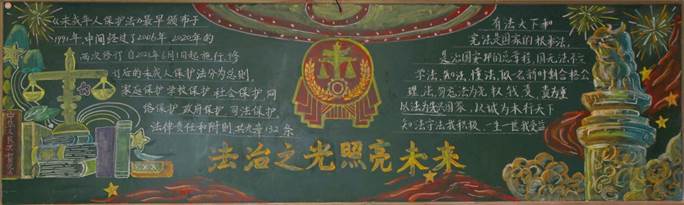 《未成年人保护法》最早颁布于
1991年,中间经过了2006年、2020年的
两次修订自2021年6月1日起施行,修
订后的未成年人保护法分为总则、
家庭保护学校保护社会保护网
络保护政府保护司法保护、
法律责任和附则共九章132条
有法天下和
宪法是国家的根本法,
是治国安邦的总章程,国无法不立
学法、知法、懂法,
理法,
以法为先兴国家,以诚为本行天下
知法守法我积极,一生一世我受益
法治之光照亮未来